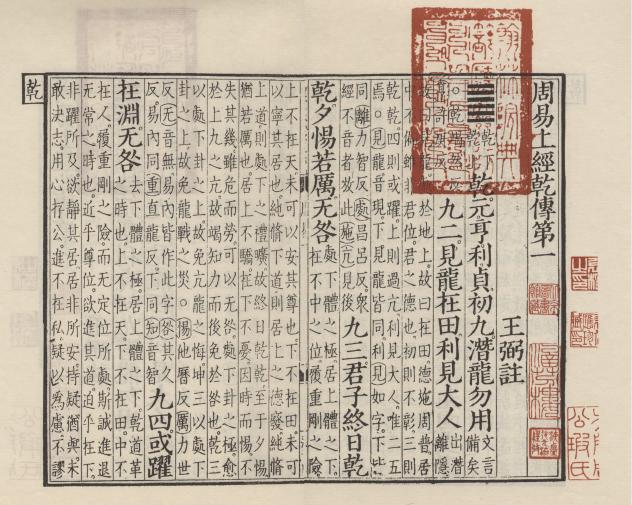 乾
周易上經乾傳第一
王弼註
乾元亨利貞初九潛龍勿用
文言備矣
九二見龍在田利見大人
出潛離隱
處於地上故曰在田德施周普居
中不偏雖非君位君之德也初則不彰三則
乾乾四則或躍上則過亢利見大人唯二五
焉見龍賢遍反見龍皆同利見如字下皆
同離力智反處昌呂反衆
經不音者放此亢見後
九三君子終日乾
乾夕惕若厲无咎
處下體之極居上體之下
在不中之位履重剛之險
上不在天未可以安其尊也下不在田未可
以寧其居也純脩下道則居上之德廢純脩
上道則處下之禮曠故終日乾乾至于夕惕
猶若厲也居上不驕在下不憂因時而惕不
失其幾雖危而勞可以无咎處下卦之極愈
於上九之亢故竭知力而後免於咎也乾三
以處下卦之上故免亢龍之悔坤三以處下
卦之上故免龍戰之災惕他曆反厲力世
反无音無易內皆作此字咎其久
反易內同重直龍反下同知音智
九四或躍
在淵无咎
去下體之極居上體
之下乾道革
之時也上不在天下不在田中不
在人履重剛之險而无定位所處斯誠進退
无常之時也近乎尊位欲進其道迫乎在下
非躍所及欲靜其居居非所安持疑猶與未
敢決志用心存公進不在私疑以爲慮不謬